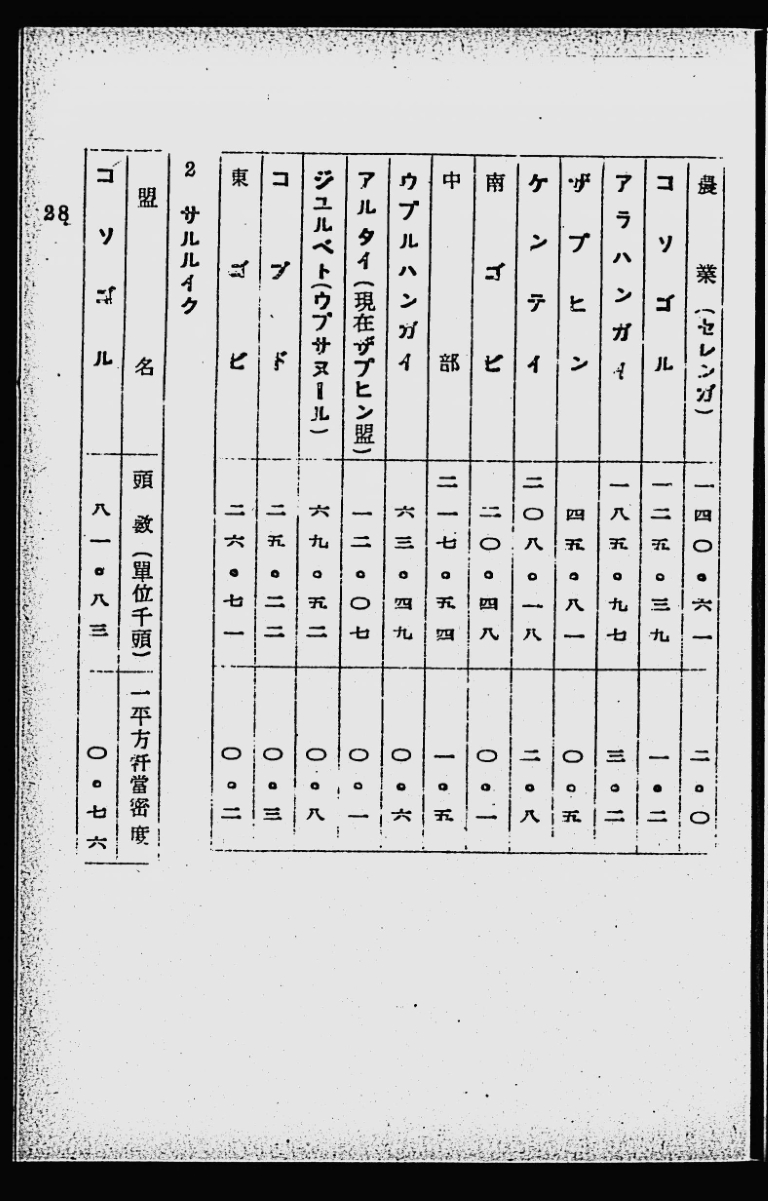 農業(セレンガ) 一四〇。六一 二。〇
コソゴル 一二五。三九 一。二
アラハンガイ 一八五。九七 三。二
ザプヒン 四五。八一 〇。五
ケンテイ 二〇八。一八 二。八
南ゴビ 二〇。四八 〇。一
中部 二一七。五四 一。五
ウブルハンガイ 六三。四九 〇。六
アルタイ(現在ザプヒン盟) 一二。〇七 〇。一
ジユルベト(ウプサヌール) 六九。五二 〇。八
コブド 二五。二二 〇。三
東ゴビ 二六。七一 〇。二
2 サルルイク
盟名 頭數(單位千頭) 一平方粁當密度
コソゴル 八一。八三 〇。七六
28